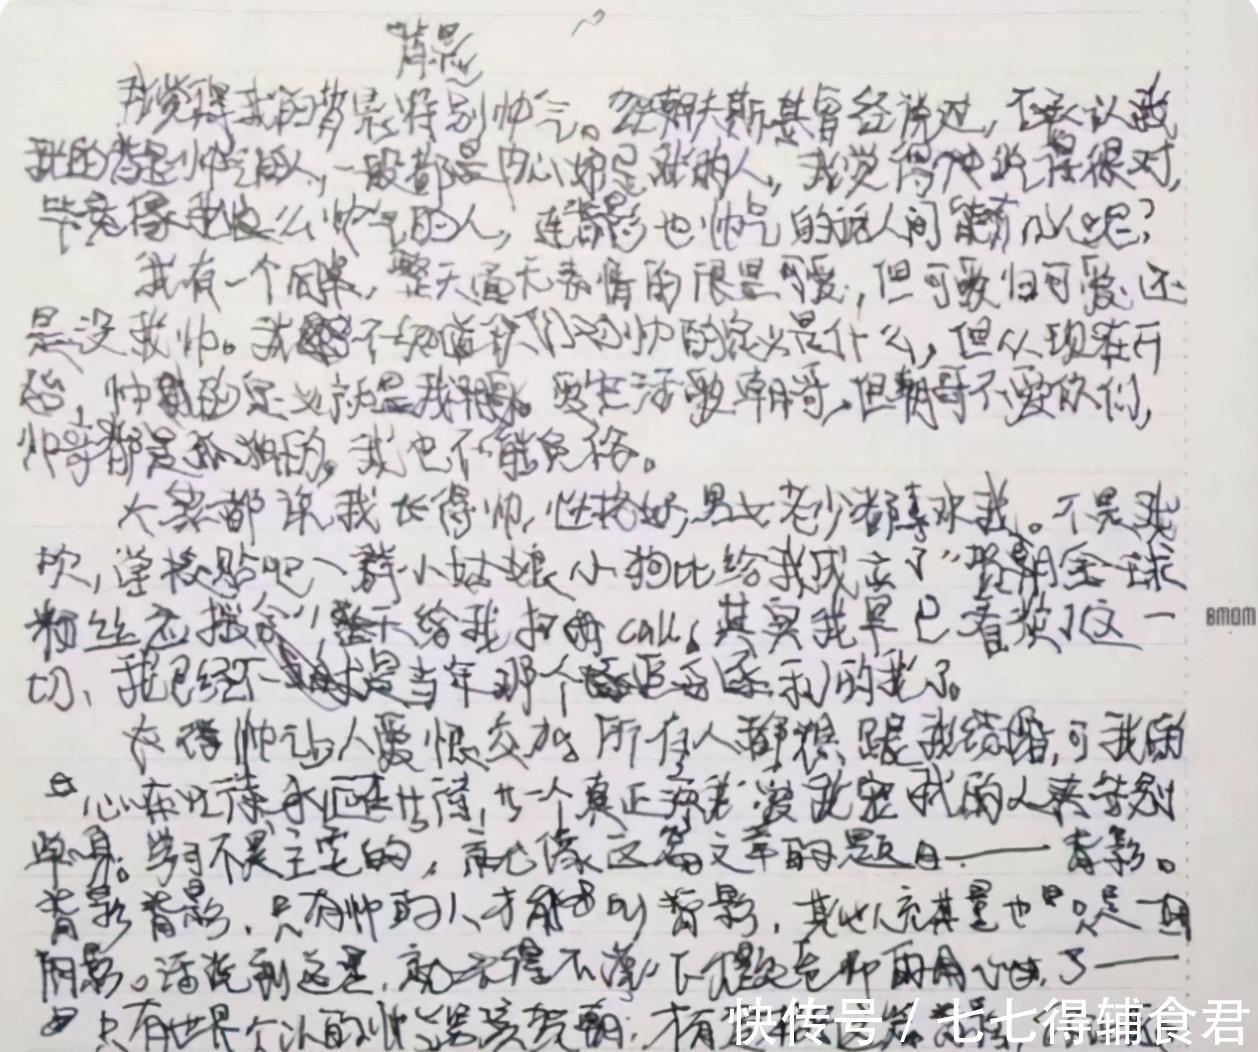 背影
我觉得我的背影特别帅气。朝夫斯基曾经说过,不承认我
我的背影帅气的人,一般都是内心妒忌我的人,我觉得他说得很对,
毕竟像我这么帅气的人,连背影也帅气的话人间能有几人呢?
我有一个同桌,整天面无表情的很是可爱,但可爱归可爱,还
是没我帅。我不知道我们对帅的定义是什么,但从现在开
始,帅的定义就是我。爱生活爱朝哥,但朝哥不爱你们,
帅哥都是孤独的,我也不能免俗。
大家都说我长得帅,性格好,男女老少都喜欢我。不是我
吹,学校贴吧一群小姑娘小狗比给我成立了“朝全球
粉丝后援会”整天给我打call,其实我早已看淡这一
切,我已经不是当年那个追名逐利的我了。
长得帅让人爱恨交加,所有人都想跟我结婚,可我的
心在等待,永远在等待,一个真正我的人来告别
单身。学习不是主要的,就像这篇文章的题目——背影。
背影背影,只有帅的人才能叫背影,其他人充其量也只是一团
阴影。话说到这里,就不得不提起帅的用了——
只有世界的帅气男孩贺朝,才有
快传号 / 七七得辅食君